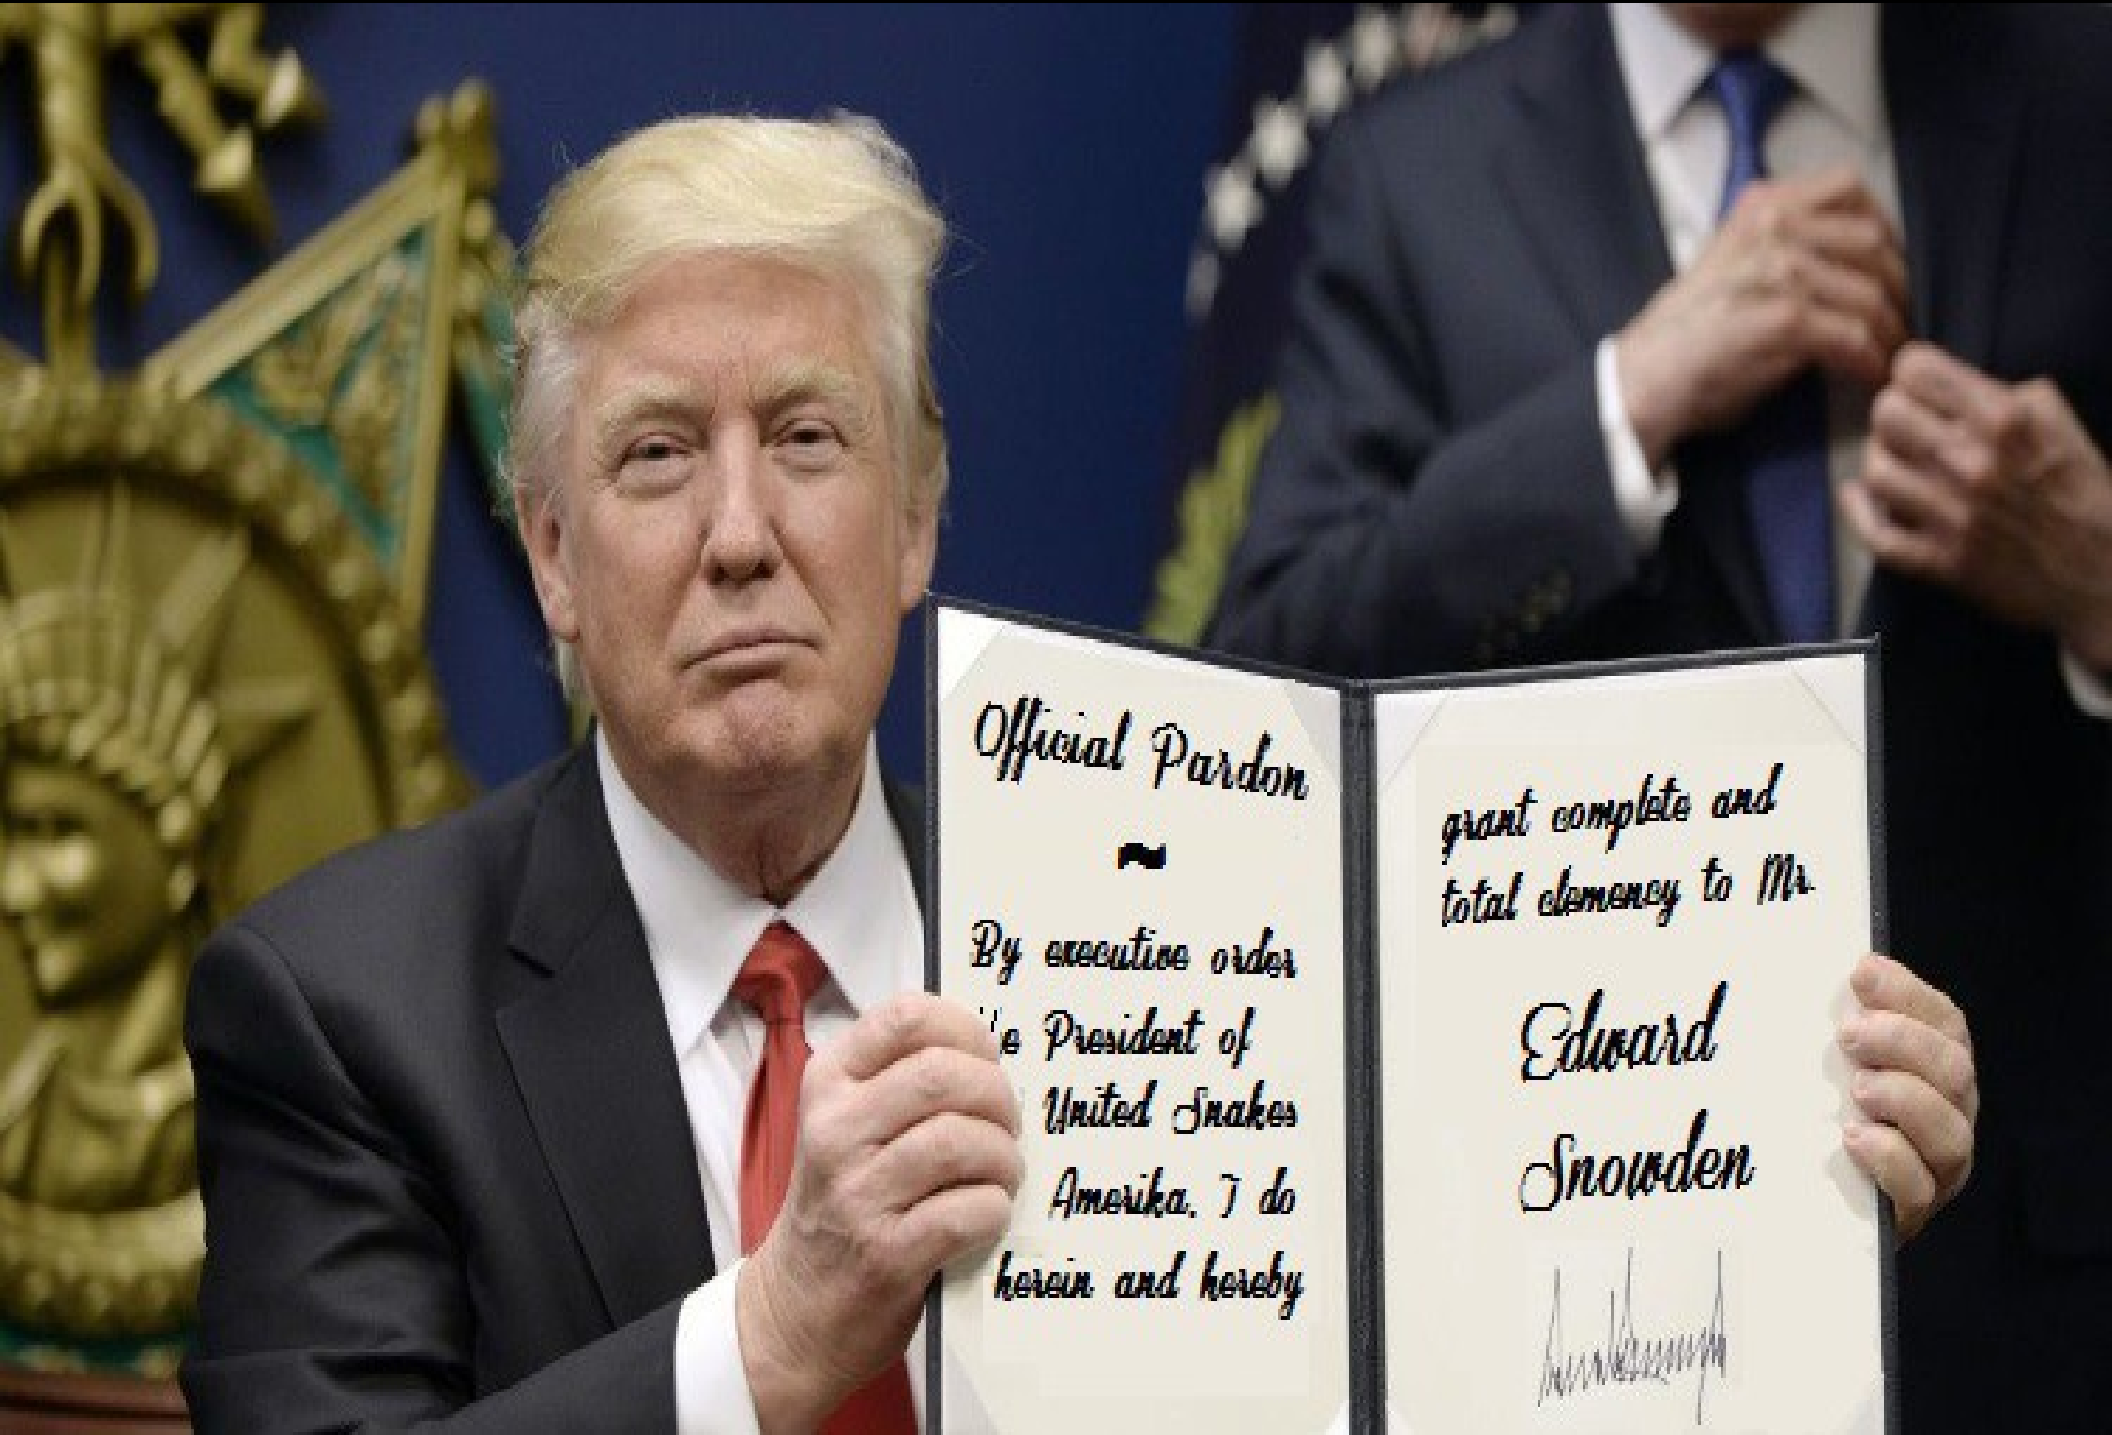 Official Pardon
~
By executive order
President of
United Snakes
Amerika. I do
herein and hereby
grant complete and
total clemency to Mr.
Edward
Snowden